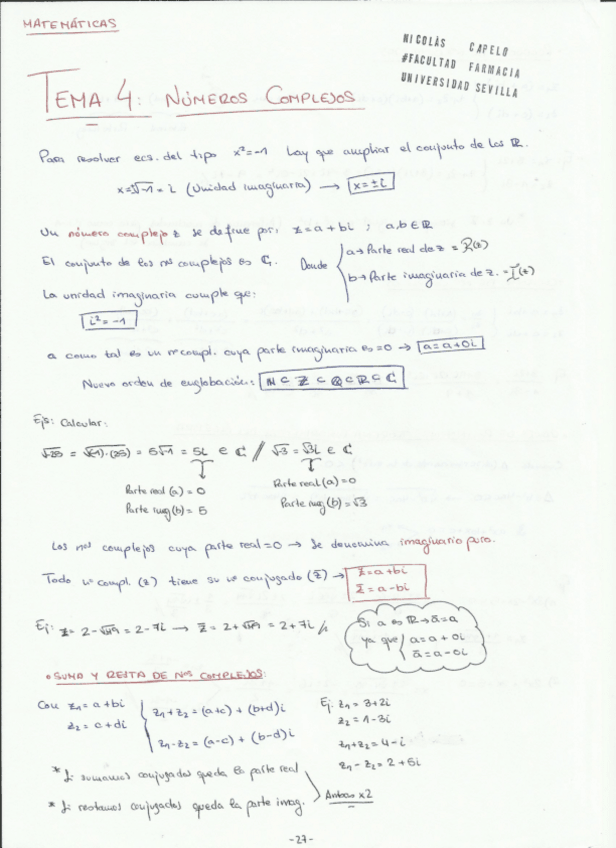 MATEMÁTICAS
NICOLÁS CAPELO
#FACULTAD FARMACIA
UNIVERSIDAD SEVILLA
TEMA 4: NÚMEROS COMPLEJOS
Para resolver ecs. del tipo x²=-1 hay que ampliar el conjunto de los ℝ.
x=√-1 = i (Unidad imaginaria) → x=±i
Un número complejo z se define por: z=a+bi ; a,b∈ℝ
El conjunto de los nos complejos es ℂ. Donde
a→Parte real de z = R(z)
b→Parte imaginaria de z. = I(z)
La unidad imaginaria cumple que:
i²=-1
a como tal es un nº compl. cuya parte imaginaria es=0 → a=a+0i
Nuevo orden de englobación: ℕ⊂ℤ⊂ℚ⊂ℝ⊂ℂ
Ejs: Calcular:
√-25 = √(-1)·(25) = 5√-1 = 5i ∈ ℂ // √-3 = √3i ∈ ℂ
Parte real (a) = 0 Parte real (a)=0
Parte img(b) = 5 Parte img(b)=√3
Los nos complejos cuya parte real=0 → se denomina imaginario puro.
Todo nº compl. (z) tiene su nº conjugado (z̄) → z=a+bi
z̄=a-bi
Ej: z= 2-√-49 = 2-7i → z̄= 2+√-49 = 2+7i
Si a es ℝ→ā=a
ya que a=a+0i
ā=a-0i
• SUMA Y RESTA DE Nos COMPLEJOS:
Con z1=a+bi
z2=c+di
z1+z2=(a+c)+(b+d)i
z1-z2=(a-c)+(b-d)i
Ej: z1=3+2i
z2=1-3i
z1+z2=4-i
z1-z2=2+5i
* Si sumamos conjugados queda la parte real
* Si restamos conjugados queda la parte imag.
Ambas x2
-27-